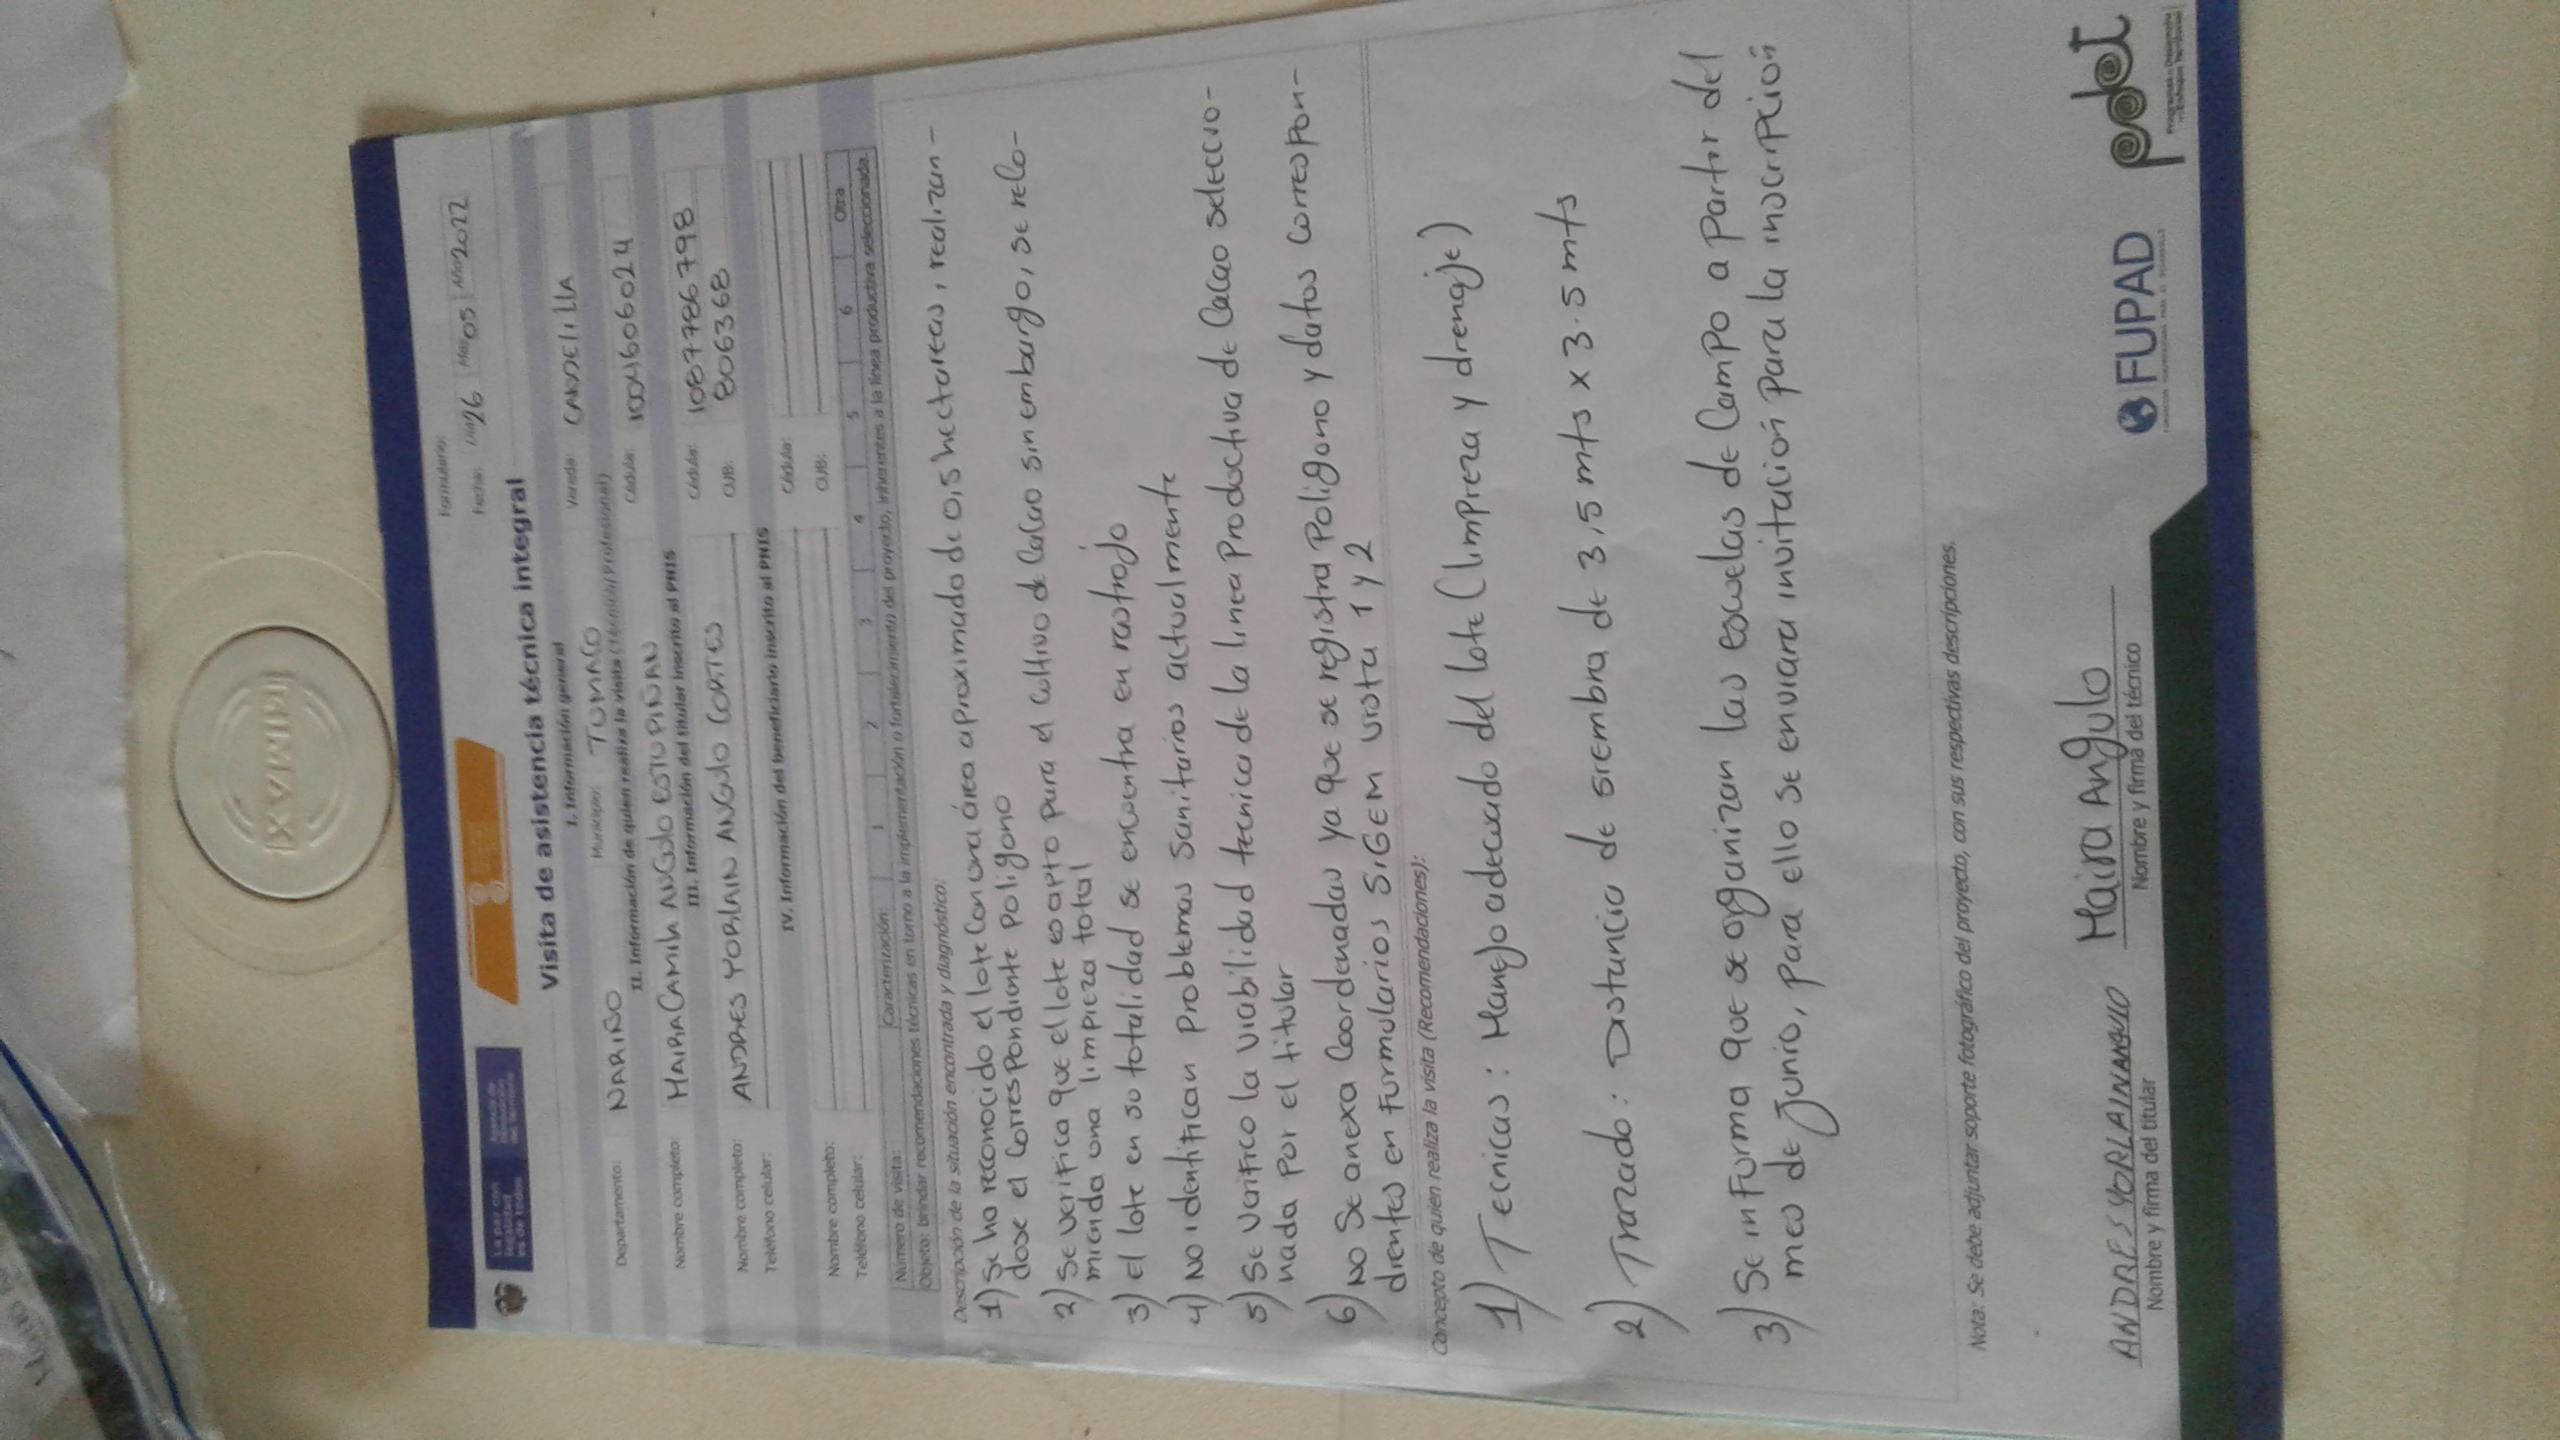 La paz con
legalidad
es de todos
Agencia de
Renovación
del Territorio
Formulario:
Fecha: Día 26 Mes 05 Año 2022
Visita de asistencia técnica integral
I. Información general
Departamento: NARIÑO Municipio: TUMACO Vereda: CANDELILLA
II. Información de quien realiza la visita (Técnico/Profesional)
Nombre completo: MAIRA CAMILA ANGULO ESTUPIÑAN Cédula: 1004606024
III. Información del titular inscrito al PNIS
Nombre completo: ANDRES YORLAIN ANGULO CORTES Cédula: 1087786798
Teléfono celular: CUB: 806368
IV. Información del beneficiario inscrito al PNIS
Nombre completo: Cédula:
Teléfono celular: CUB:
Número de visita: Caracterización: 1 2 3 4 5 6 Otra
Objeto: brindar recomendaciones técnicas en torno a la implementación o fortalecimiento del proyecto, inherentes a la línea productiva seleccionada.
Descripción de la situación encontrada y diagnóstico:
1) Se ha reconocido el lote con una área aproximado de 0,5 hectareas, realizan-
dose el correspondiente poligono
2) Se verifica que el lote es apto para el cultivo de Cacao sin embargo, se reco-
mienda una limpieza total
3) el lote en su totalidad se encuentra en rastrojo
4) No identifican problemas sanitarios actualmente
5) Se verifico la viabilidad tecnica de la linea productiva de Cacao seleccio-
nada por el titular
6) No se anexa coordenadas ya que se registra Poligono y datos correspon-
dientes en Formularios SIGEM visita 1 y 2
Concepto de quien realiza la visita (Recomendaciones):
1) Tecnicas: Manejo adecuado del lote (limpieza y drenaje)
2) Trazado: Distancia de siembra de 3,5 mts x 3.5 mts
3) Se informa que se organizan las escuelas de Campo a partir del
mes de Junio, para ello se enviara invitación para la inscripción
Nota: Se debe adjuntar soporte fotográfico del proyecto, con sus respectivas descripciones.
ANDRES YORLAIN ANGULO Maira Angulo
Nombre y firma del titular Nombre y firma del técnico
FUPAD
pdet
Programas de Desarrollo
con Enfoque Territorial
RIMAX